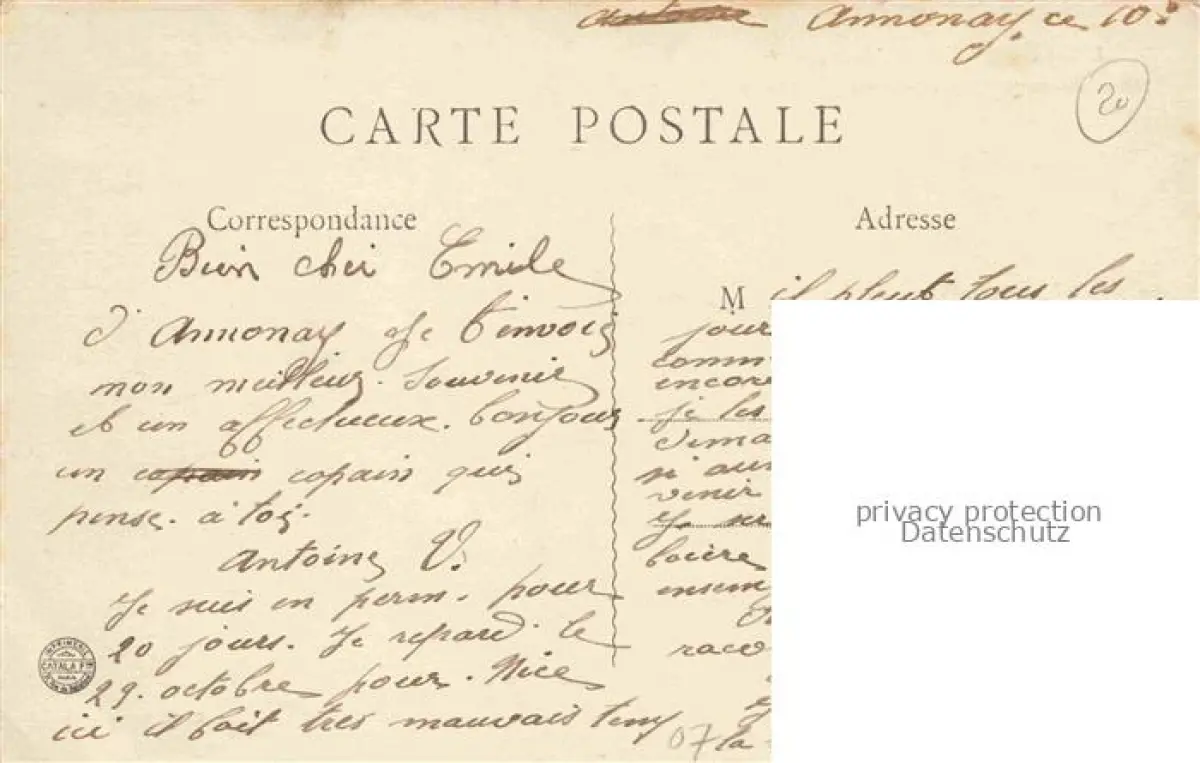 Annonay, ce 10
20
CARTE POSTALE
Correspondance
Bien cher Emile
d'Annonay Je t'envoi
mon meilleur. Souvenir
et un affectueux. bonjour
un copain copain qui
pense. à toi.
Antoine V.
Je suis en perm. pour
20 jours. Je repard. le
29. octobre pour. Nice
ici il fait très mauvais temp
Adresse
M il pleut tous les
jour
comm
encore
je les
dima
si au
venir
Je se
boire
ensem
raco
la
07
IMPRIMERIE
CATALA F
PARIS
privacy protection
Datenschutz